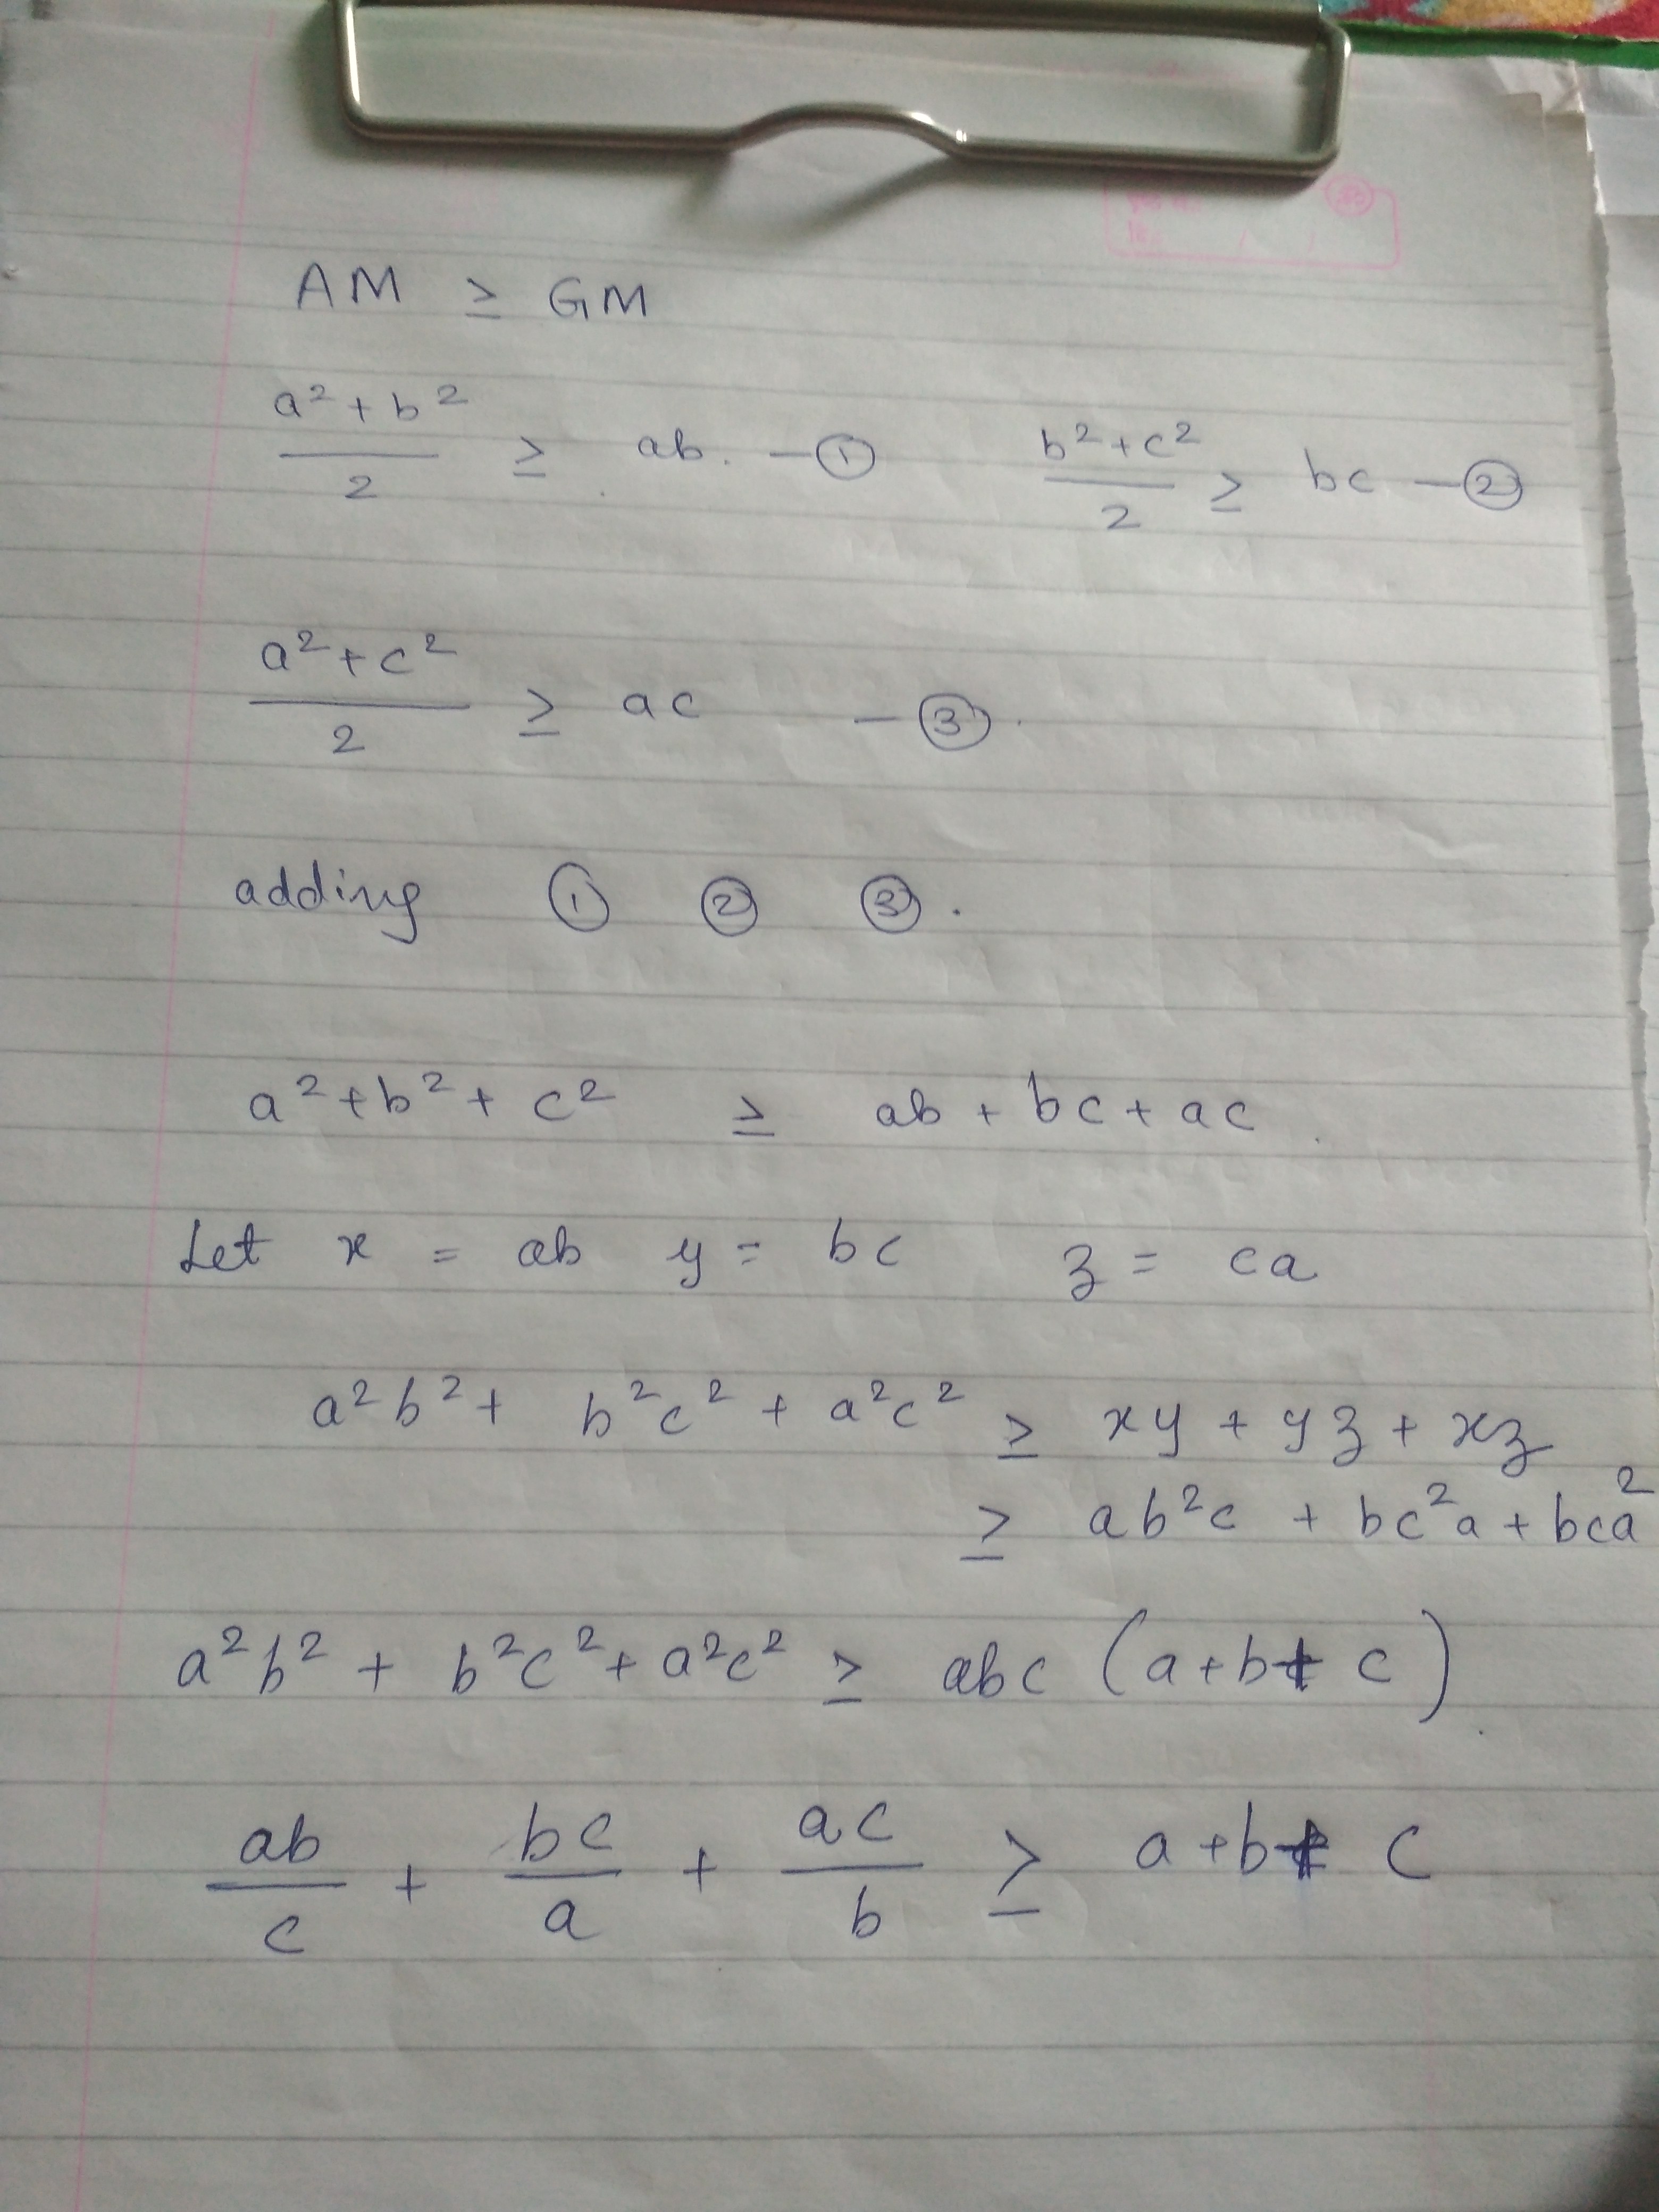 AM ≥ GM
a²+b²/2 ≥ ab. —① b²+c²/2 ≥ bc —②
a²+c²/2 ≥ ac —③.
adding ① ② ③.
a²+b²+c² ≥ ab+bc+ac.
Let x = ab y = bc z = ca
a²b²+ b²c² + a²c² ≥ xy + yz + xz
≥ ab²c + bc²a + bca²
a²b² + b²c² + a²c² ≥ abc (a+b+c).
ab/c + bc/a + ac/b ≥ a+b+c